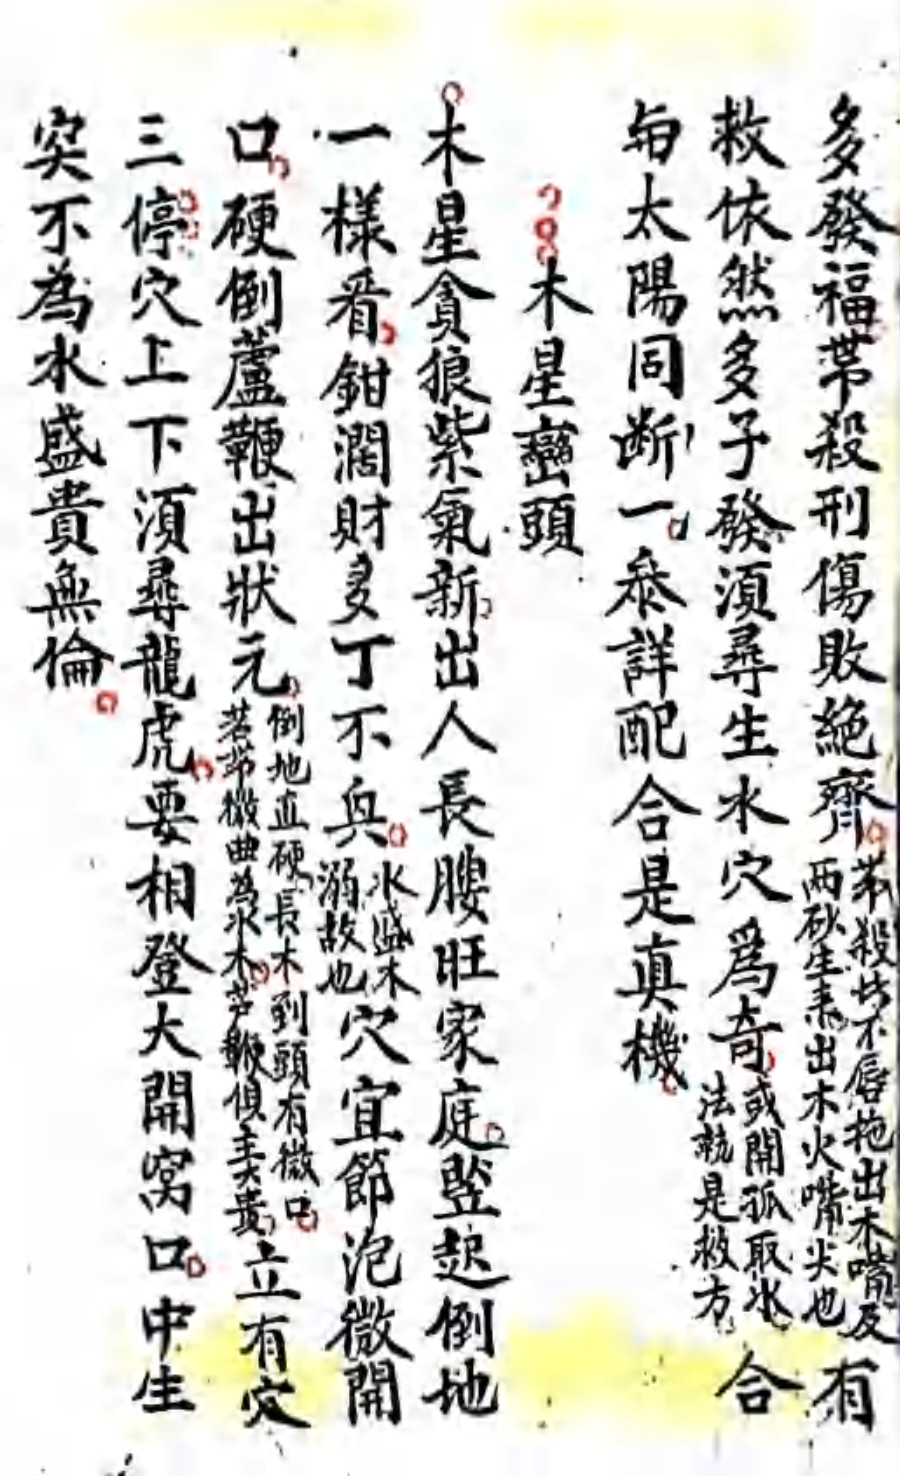 多發福帶殺刑傷敗絕齊帶殺皆不唇拖出木嘴及兩砂生來出木火嘴尖也有
救依然多子發須尋生水穴為奇或開孤取水法就是救方合
與太陽同断一叅詳配合是真機
木星巒頭
木星貪狼紫氣新出人長腰旺家庭竪起倒地
一樣看鉗濶財多丁不興水盛木溺故也穴宜節泡微開
口硬倒蘆鞭出狀元倒地直硬長木到頭有微口若節微曲為水木芦鞭俱主大貴立有穴
三停穴上下須尋龍虎要相登大開窩口中生
突不為水盛貴無倫